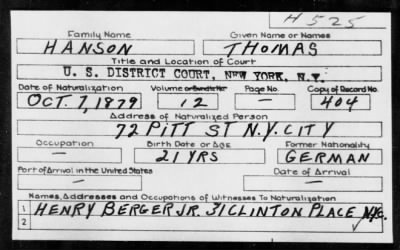 H 525
Family Name Given Name or Names
HANSON THOMAS
Title and Location of Court
U. S. DISTRICT COURT, NEW YORK, N.Y.
Date of Naturalization Volume or Bundle No. Page No. Copy of Record No.
OCT. 7, 1879 12 — 404
Address of Naturalized Person
72 PITT ST N.Y. CITY
Occupation Birth Date or Age Former Nationality
— 21 YRS GERMAN
Port of Arrival in the United States Date of Arrival
— —
Names, Addresses and Occupations of Witnesses To Naturalization
1 HENRY BERGER JR. 31 CLINTON PLACE N.Y.C.
2